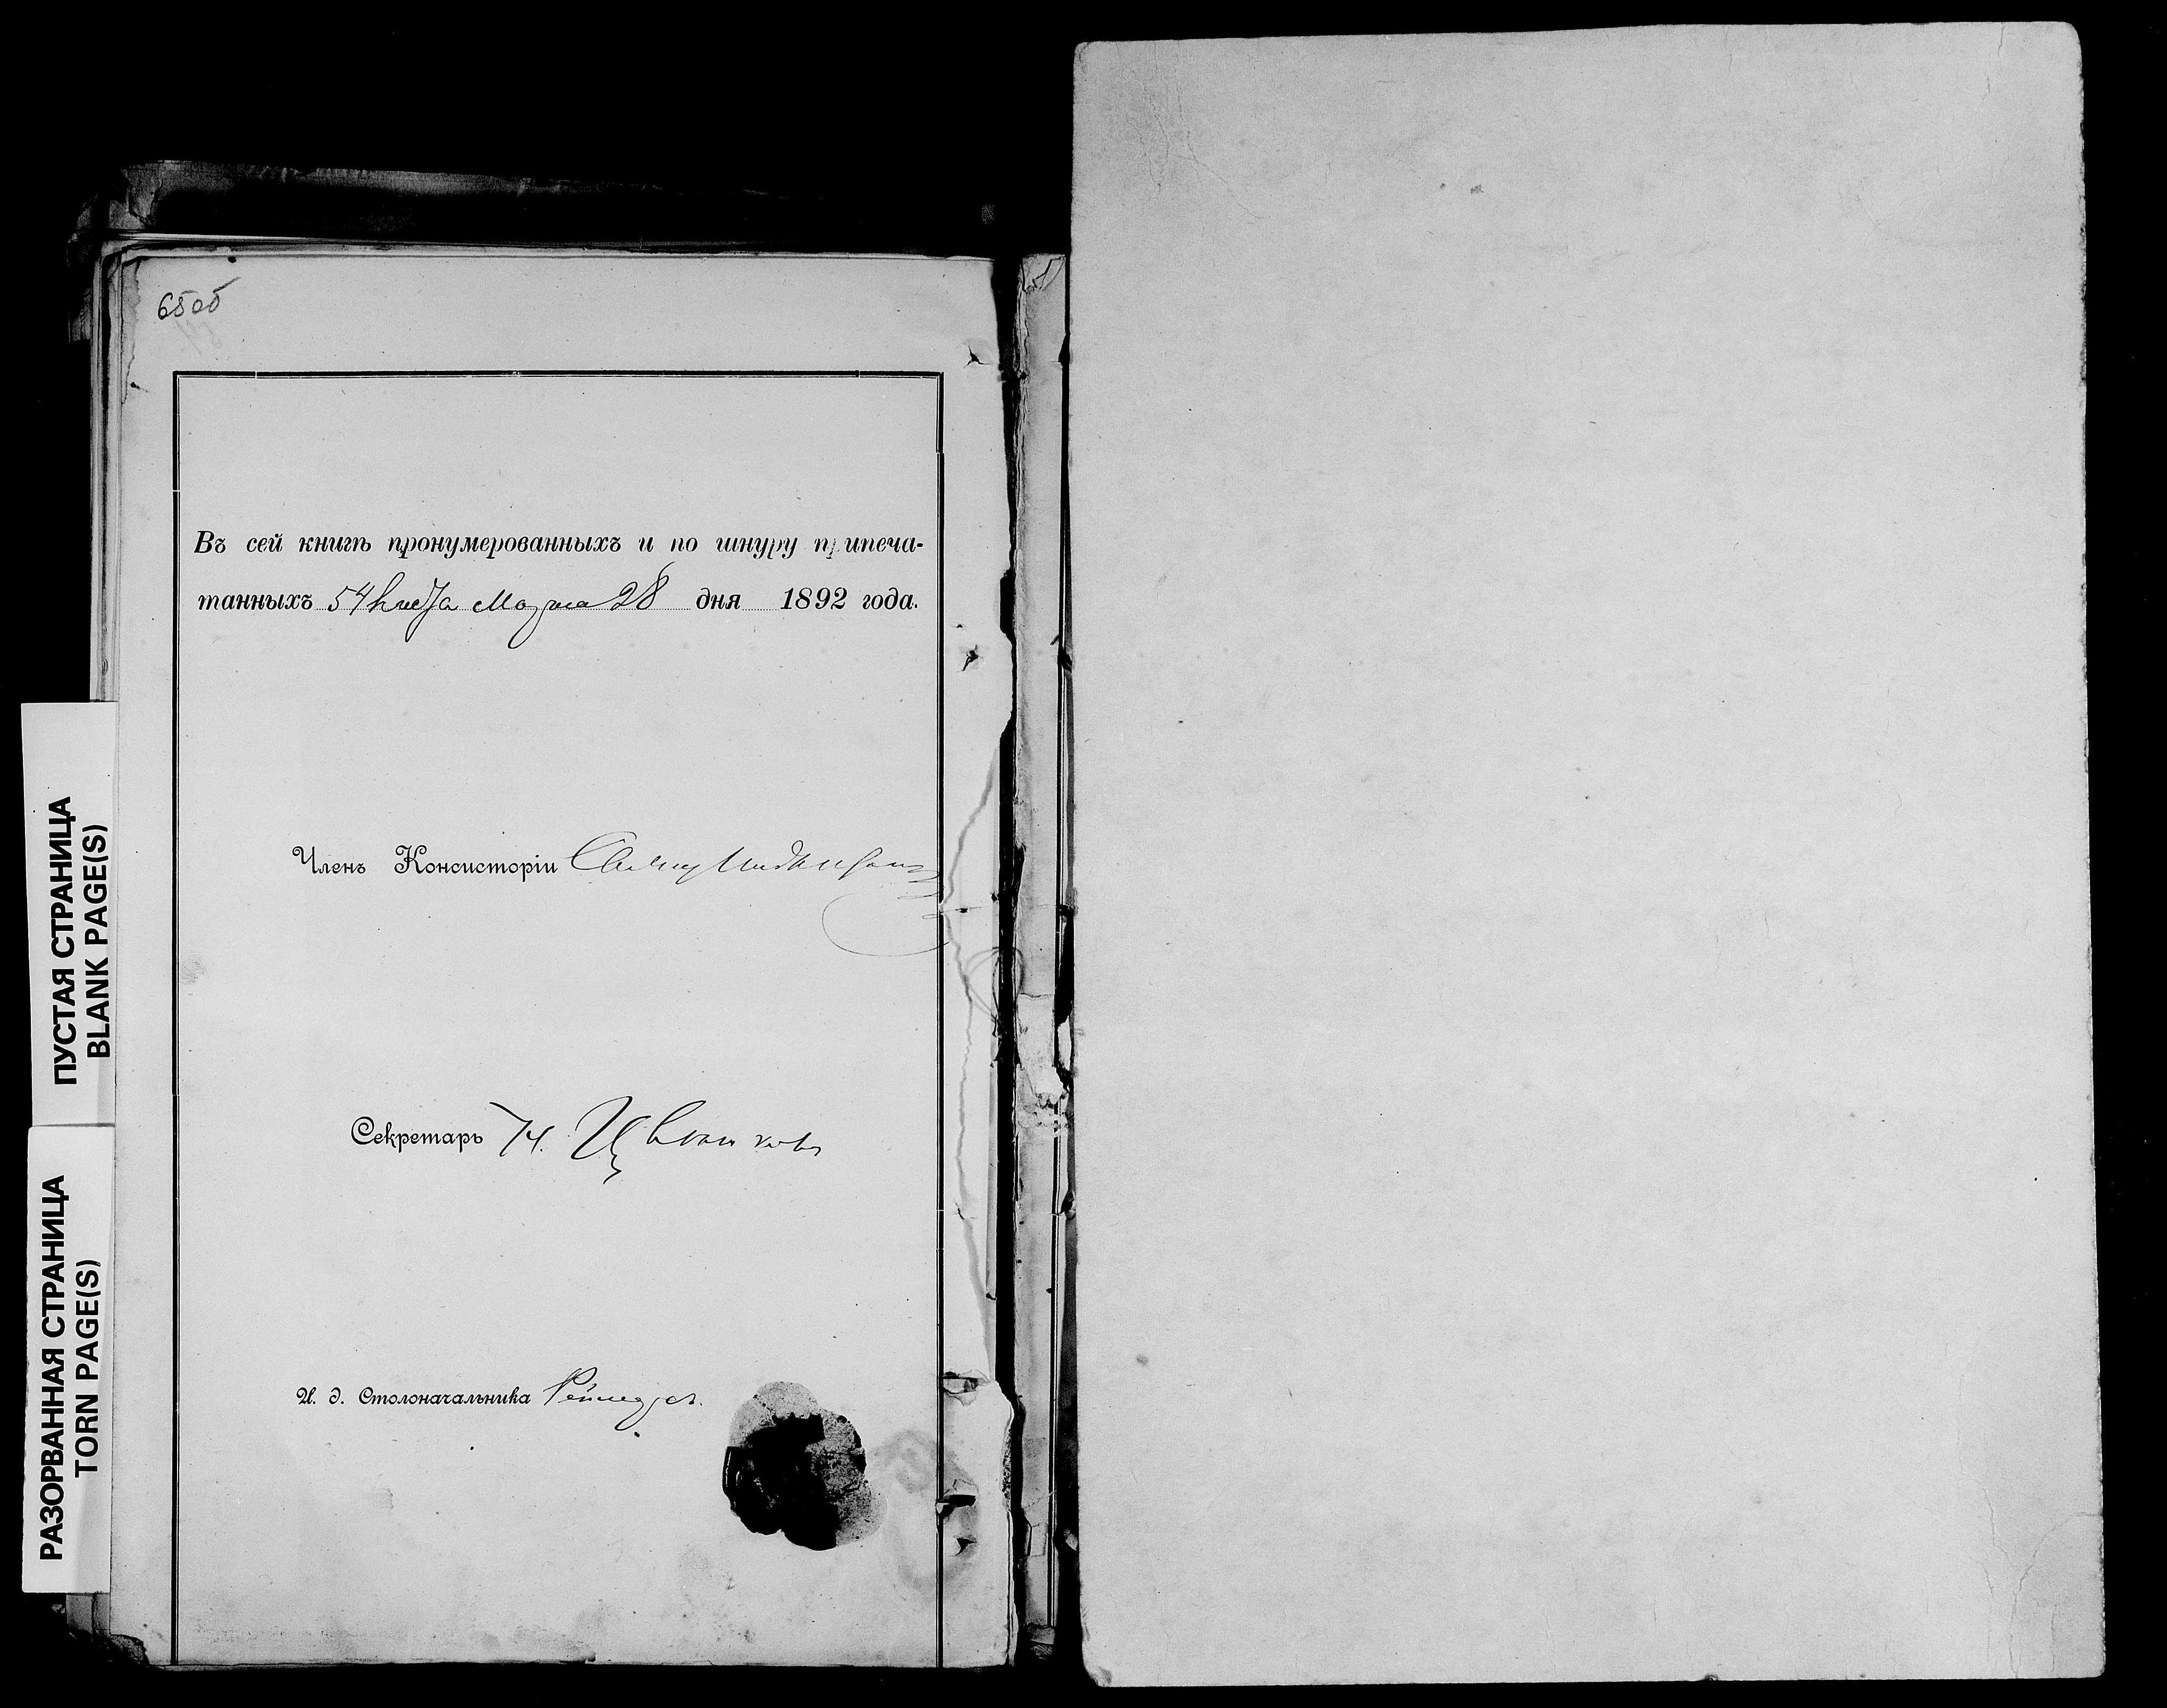 65об
Въ сей книгѣ пронумерованныхъ и по шнуру припеча-
танныхъ 54 листа Марта 28 дня 1892 года.
Членъ Консисторіи
Секретарь Н. Цвѣтковъ
И. д. Столоначальника
ПУСТАЯ СТРАНИЦА
BLANK PAGE(S)
РАЗОРВАННАЯ СТРАНИЦА
TORN PAGE(S)